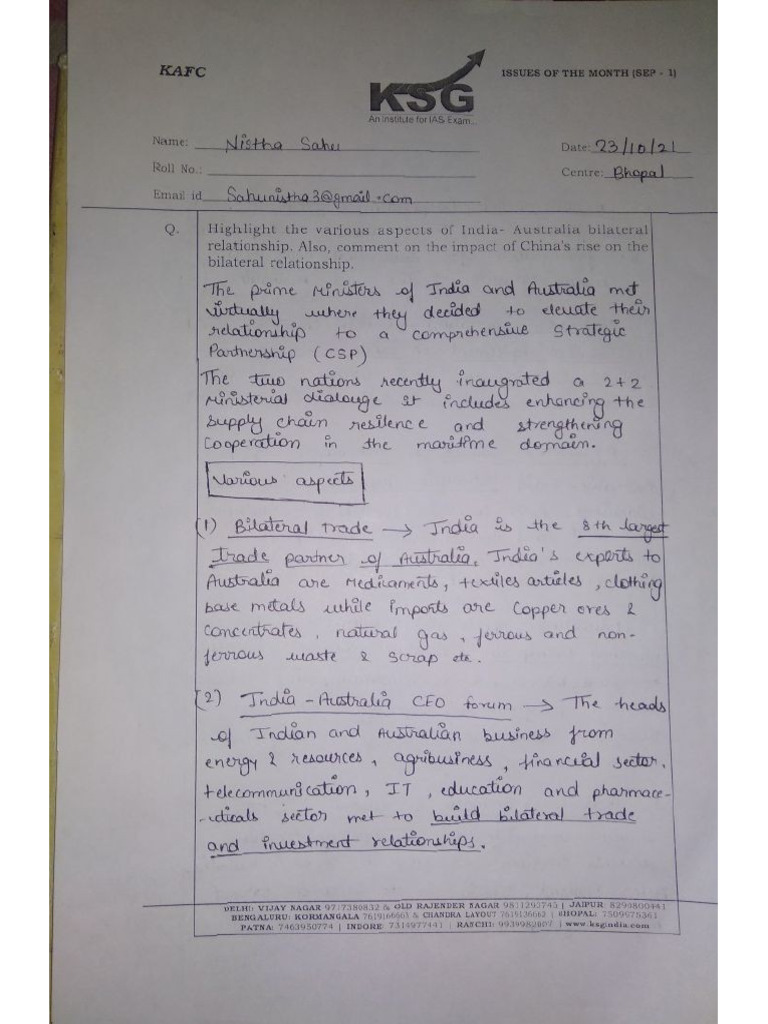 KAFC
KSG
An Institute for IAS Exam...
ISSUES OF THE MONTH (SEP - 1)
Name: Nistha Sahu
Date: 23/10/21
Roll No.:
Centre: Bhopal
Email id Sahunistha3@gmail.com
Q. Highlight the various aspects of India- Australia bilateral
relationship. Also, comment on the impact of China's rise on the
bilateral relationship.
The prime Ministers of India and Australia met
virtually where they decided to elevate their
relationship to a comprehensive Strategic
Partnership (CSP)
The two nations recently inaugrated a 2+2
Ministerial dialouge It includes enhancing the
supply chain resilence and strengthening
Cooperation in the maritime domain.
Various aspects
(1) Bilateral trade → India is the 8th largest
trade partner of Australia. India's exports to
Australia are Medicaments, textiles articles, clothing
base metals while imports are Copper ores &
Concentrates, natural gas, ferrous and non-
ferrous waste & scrap etc.
(2) India - Australia CEO forum → The heads
of Indian and Australian business from
energy & resources, agribusiness, financial sector,
telecommunication, IT, education and pharmace-
-uticals sector met to build bilateral trade
and investment relationships.
DELHI: VIJAY NAGAR 9717380832 & OLD RAJENDER NAGAR 9811293745 | JAIPUR: 8290800441
BENGALURU: KORMANGALA 7619166663 & CHANDRA LAYOUT 7619136662 | BHOPAL: 7509975361
PATNA: 7463950774 | INDORE: 7314977441 | RANCHI: 9939982007 | www.ksgindia.com